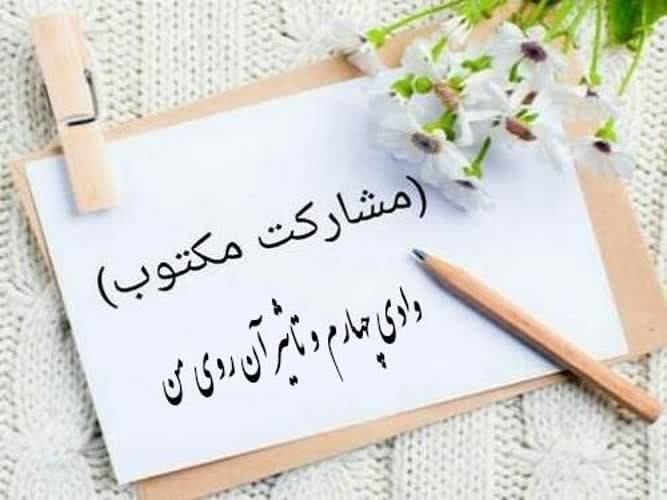 (مشارکت مکتوب)
وادی چهارم و تاثیر آن روی من